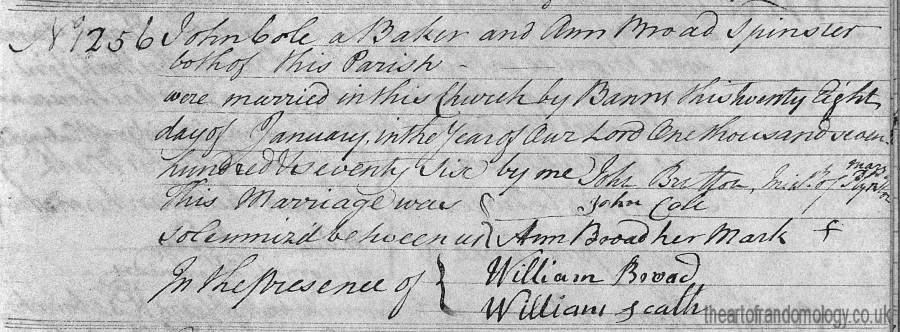 No 1256 John Cole a Baker and Ann Broad Spinster
both of this Parish
were married in this Church by Banns this twenty Eight
day of January, in the Year of Our Lord One thousand seven
hundred & seventy Six by me John Britton, Minr. of
This Marriage was { John Cole
Solemniz'd between us { Ann Broad her Mark +
In the presence of { William Broad
William Scath
theartofrandomology.co.uk